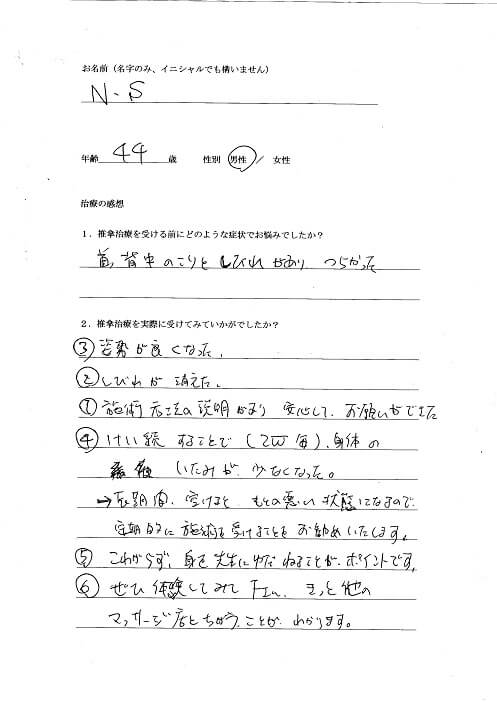 お名前（名字のみ、イニシャルでも構いません）
N・S
年齢 44 歳 性別 男性 / 女性
治療の感想
1．推拿治療を受ける前にどのような症状でお悩みでしたか？
首、背中のこりと しびれがあり つらかった
2．推拿治療を実際に受けてみていかがでしたか？
③ 姿勢が良くなった。
② しびれが 消えた。
① 施術方法の説明があり 安心して、お願いができた
④ けい続することで（2W毎）、身体の
いたみが、少なくなった。
→長期間、空けると もとの悪い状態になるので、
定期的に施術を受けることをお勧めいたします。
⑤ これからず、身を先生にゆだねることが、ポイントです。
⑥ ぜひ体験してみて下さい。きっと他の
マッサージ店とちがうことが、わかります。